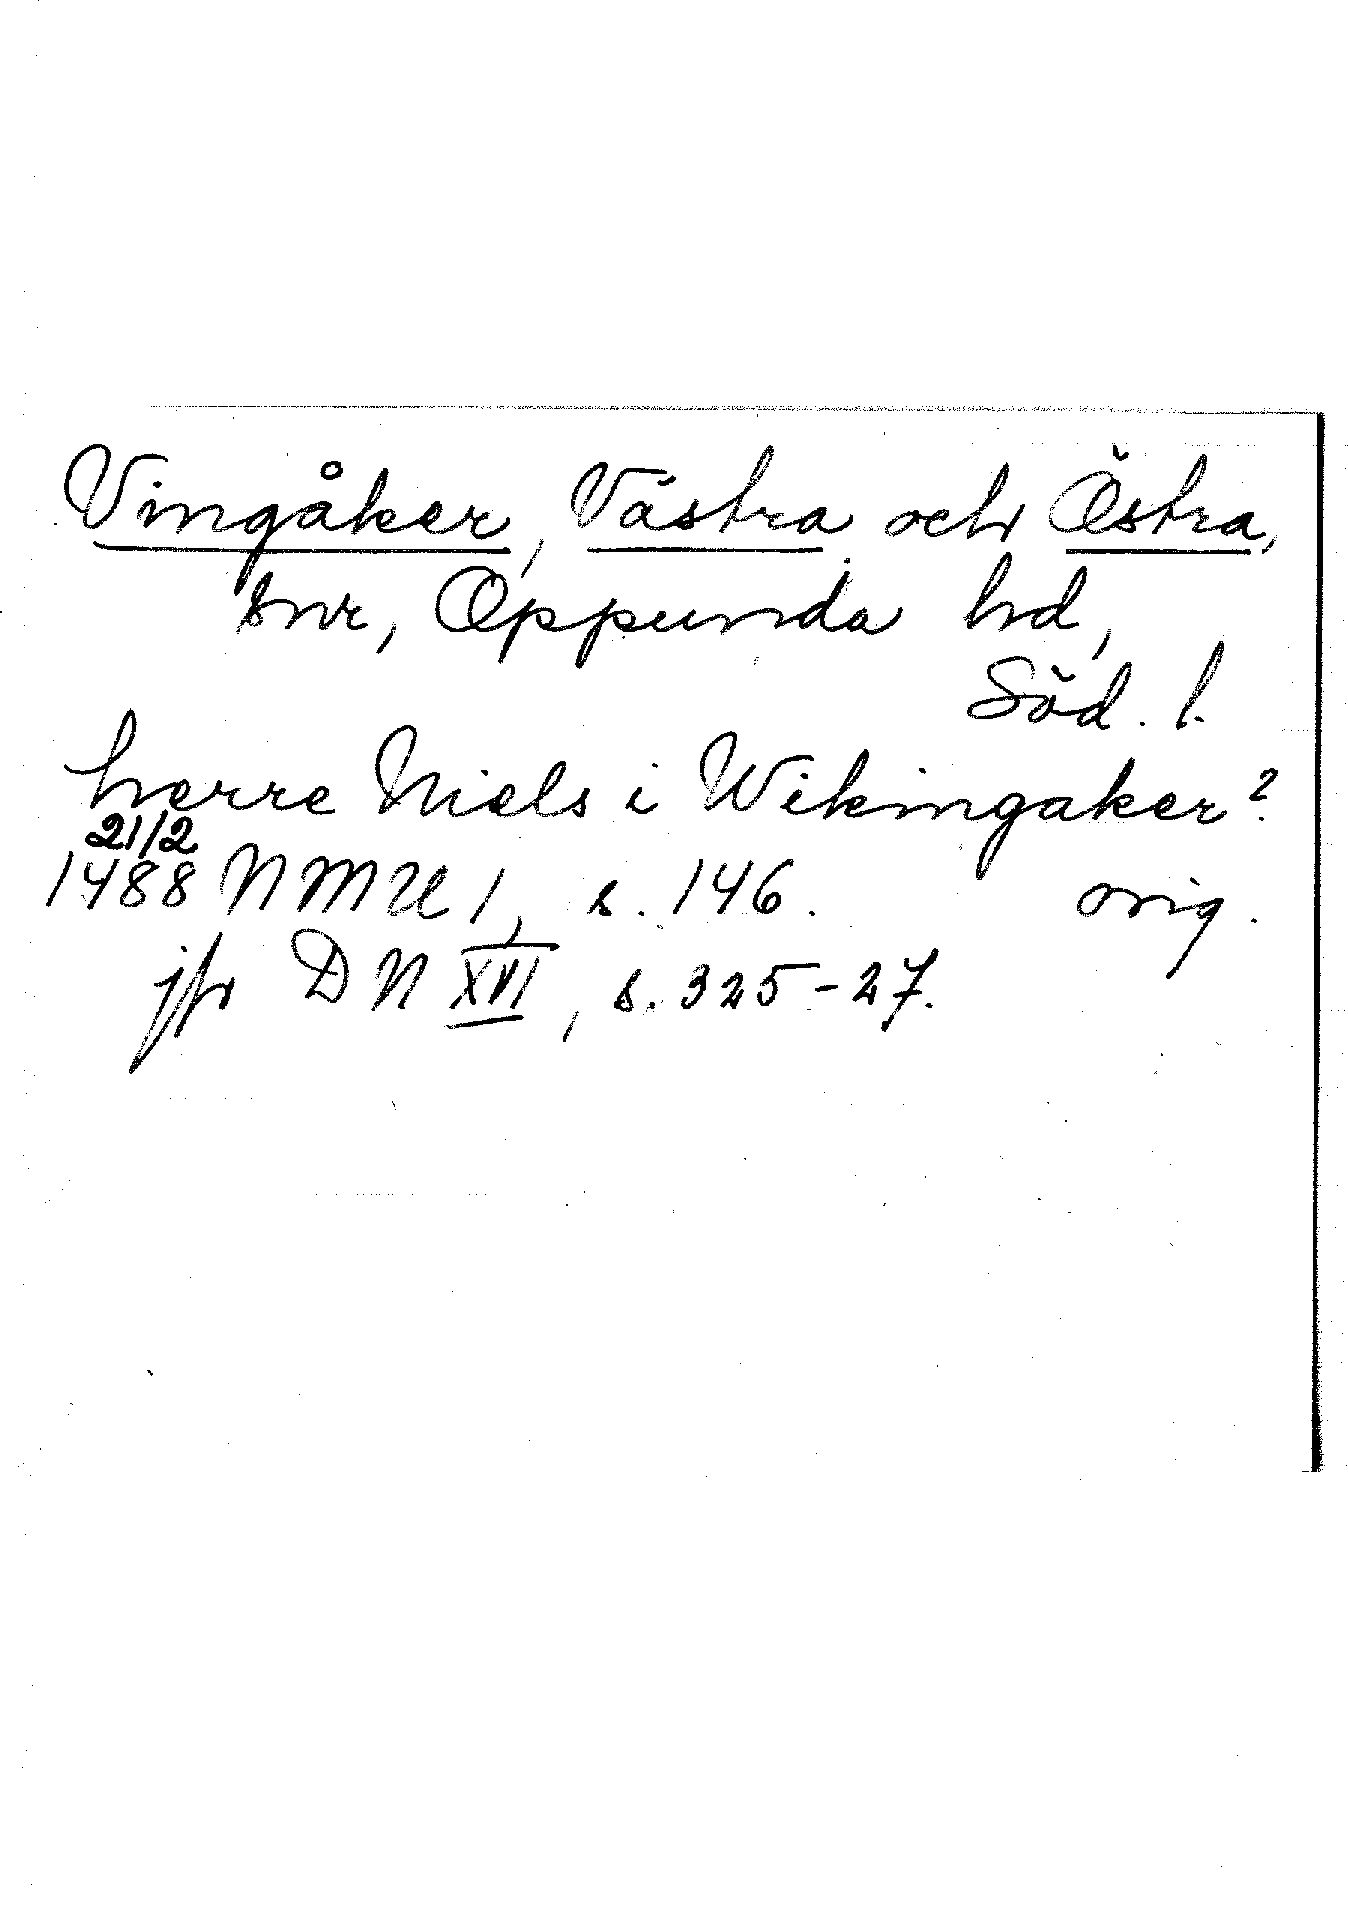 Vingåker, Västra och Östra,
snr, Oppunda hd,
Söd. l.
herre Niels i Wikingaker?
21/2
1488 NMU 1, s. 146. orig.
jfr DN XVI, s. 325-27.